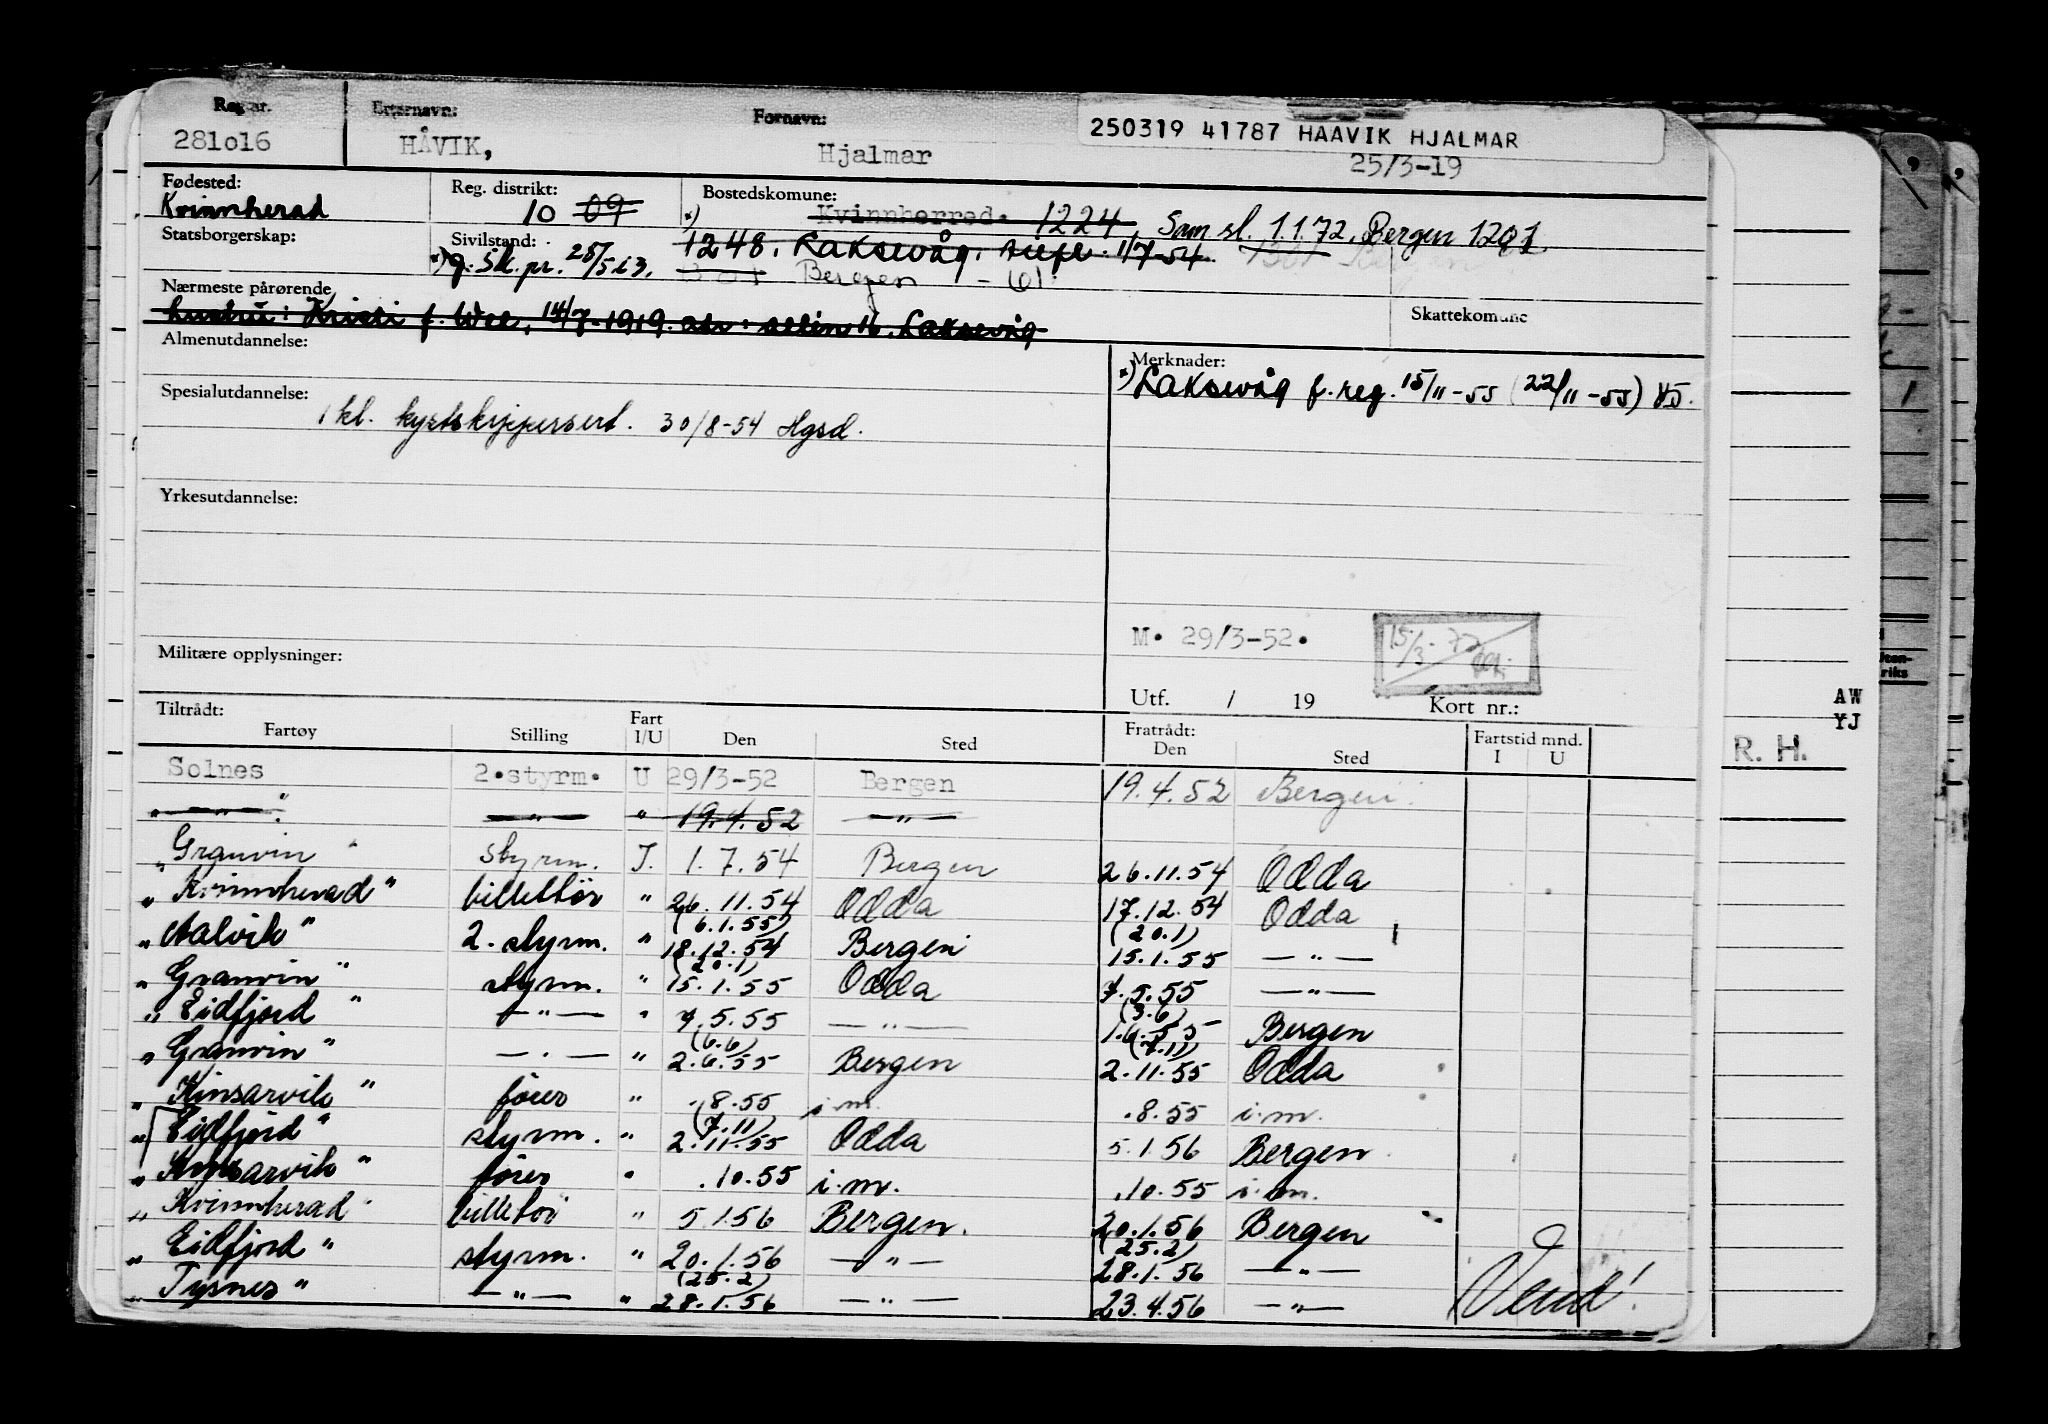 Reg.nr. Etternavn: Fornavn: 250319 41787 HAAVIK HJALMAR
281016 HÅVIK, Hjalmar 25/3-19
Fødested: Reg. distrikt: Bostedskomune:
Kvinnherad 10 09 *) Kvinnherred. 1224, Sam. sl. 1.1.72. Bergen 1201.
Statsborgerskap: Sivilstand: 1248. Laksevåg. 1/7-54.
*) g. Sk. pr. 25/5 63. 301 Bergen - (6)
Nærmeste pårørende
hustru: Kristi f. Wee, 14/7-1919. adr: 16, Laksevåg
Skattekomune
Almenutdannelse: Merknader:
*) Laksevåg f. reg. 15/11-55 (22/11-55)
Spesialutdannelse:
1 kl. kystskippersert. 30/8-54 Hgsd.
Yrkesutdannelse:
M. 29/3-52. 15/3-72
Militære opplysninger:
Utf. / 19 Kort nr.:
AW
YJ
R. H.
Tiltrådt: Fratrådt:
Fartøy Stilling Fart I/U Den Sted Den Sted Fartstid mnd. I U
Solnes 2.styrm. U 29/3-52 Bergen 19.4.52 Bergen
" — " — " — " — " 19.4.52 — " —
"Granvin" styrm. I. 1.7.54 Bergen 26.11.54 Odda
"Kvinnherad" billettør " 26.11.54 Odda 17.12.54 Odda
"Aalvik" 2. styrm. " (6.1.55) 18.12.54 Bergen (20.1) 15.1.55 — " —
"Granvin" styrm. " (20.1) 15.1.55 Odda 7.5.55 — " —
"Eidfjord" — " — " 7.5.55 — " — (3.6) 1.6.55 Bergen
"Granvin" — " — " (6.6) 2.6.55 Bergen (7.11) 2.11.55 Odda
"Kinsarvik" fører " .8.55 i.m. .8.55 i.m.
"Eidfjord" styrm. " (7.11) 2.11.55 Odda 5.1.56 Bergen
"Kinsarvik" fører " .10.55 i.m. .10.55 i.m.
"Kvinnherad" billettør " 5.1.56 Bergen. 20.1.56 Bergen
"Eidfjord" styrm. " 20.1.56 — " — (25.2) 28.1.56 — " —
"Tysnes" — " — " (25.2) 28.1.56 — " — 23.4.56 — " —
Vend!